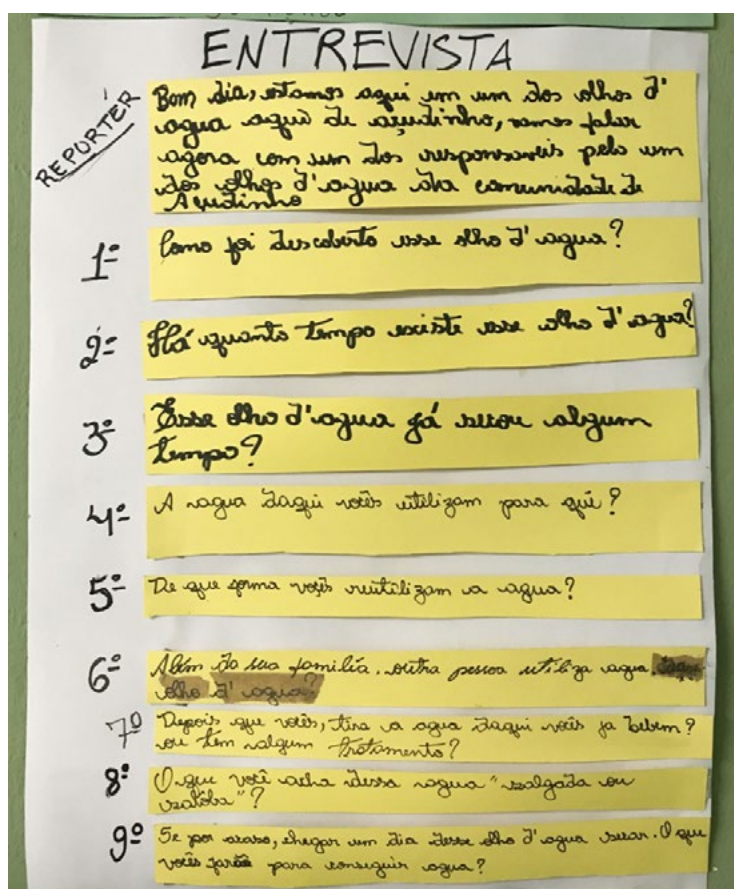 ENTREVISTA
REPORTÉR
Bom dia, estamos aqui em um dos olhos d'
agua aqui de açudinho, vamos falar
agora com um dos responsaveis pelo um
dos olhos d'agua da comunidade de
Açudinho
1º Como foi descoberto esse olho d'agua?
2º Há quanto tempo existe esse olho d'agua?
3º Esse olho d'agua já secou algum
tempo?
4º A agua daqui vocês utilizam para quê?
5º De que forma vocês reutilizam a agua?
6º Além da sua família, outra pessoa utiliza agua
olho d'agua?
7º Depois que vocês, tira a agua daqui vocês ja bebem?
ou tem algum tratamento?
8º O que você acha dessa agua "salgada ou
salôba"?
9º Se por acaso, chegar um dia desse olho d'agua secar. O que
vocês farão para conseguir agua?